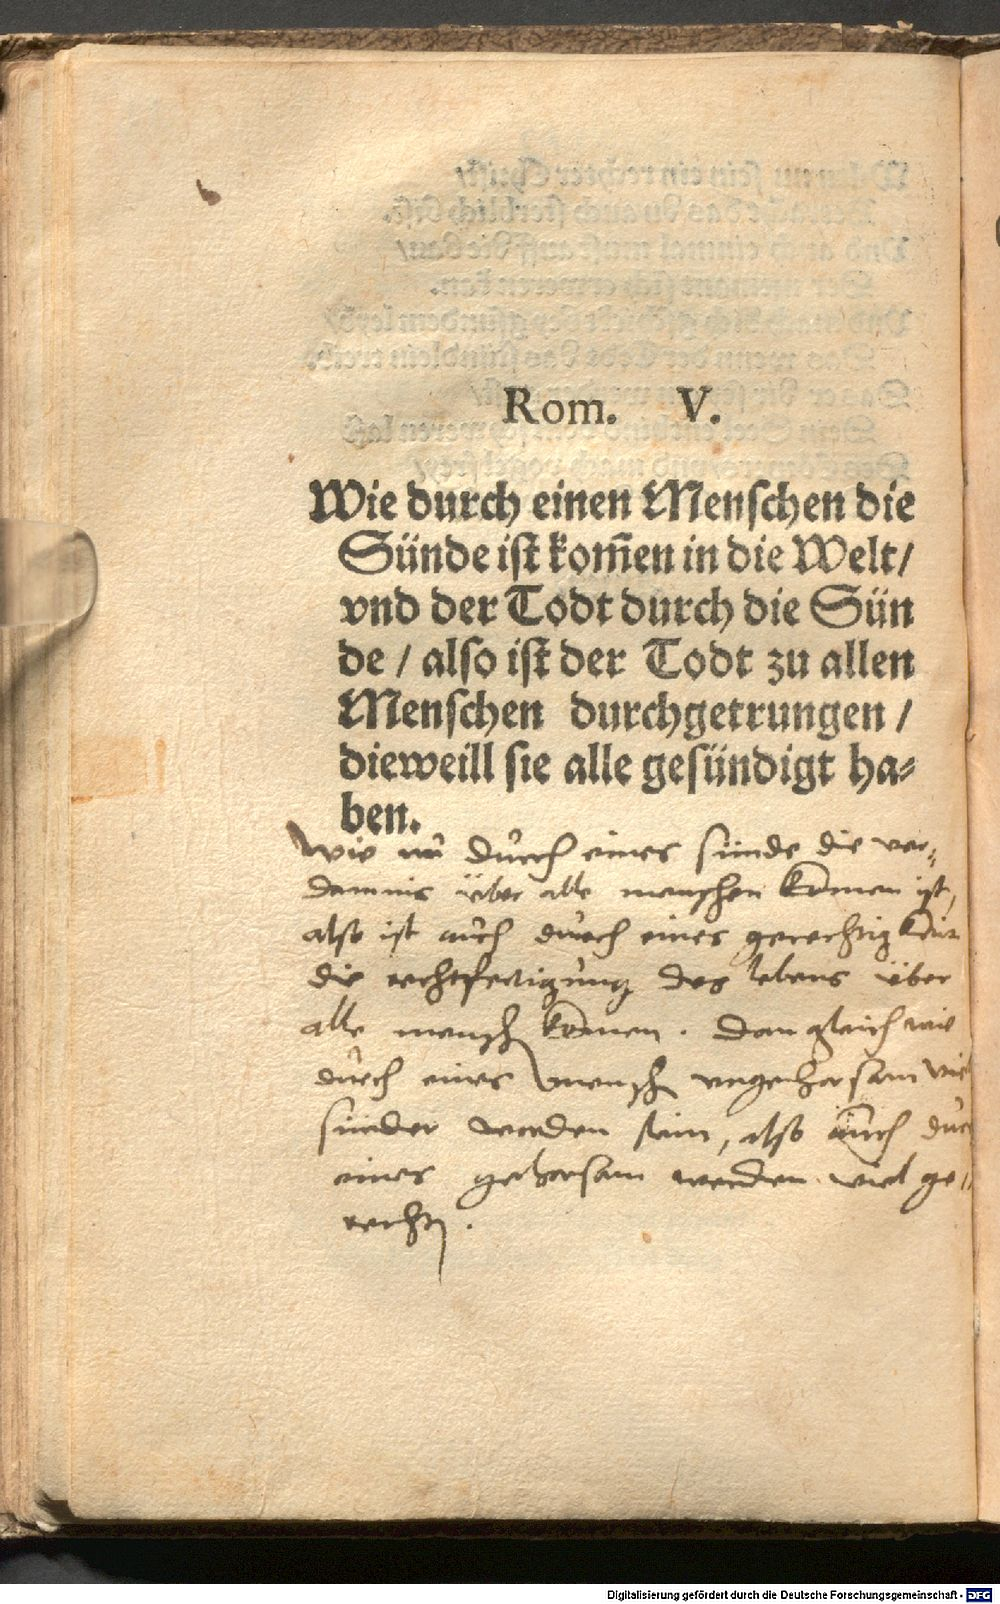 Rom. V.
Wie durch einen Menschen die
Sünde ist kom̃en in die Welt/
vnd der Todt durch die Sün
de / also ist der Todt zu allen
Menschen durchgetrungen /
dieweill sie alle gesündigt ha-
ben.
Wie nū durch eines sünde die ver-
damnis über alle menschen komen ist,
also ist auch durch eines gerechtigkeit
die rechtfertigung des lebens über
alle mensch komen. Dan gleich wie
durch eines mensch ungehorsam viel
sünder worden sein, also auch durch
eines gehorsam werden viel ge-
rechte.
Digitalisierung gefördert durch die Deutsche Forschungsgemeinschaft - DFG